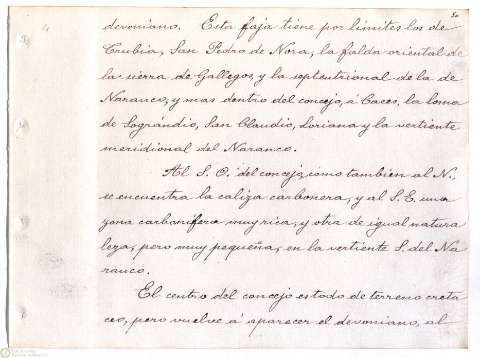 4
devoniano. Esta faja tiene por límites los de
Trubia, San Pedro de Nora, la falda oriental de
la sierra de Gallegos, y la septentrional de la de
Naranco, y mas dentro del concejo, á Caces, la loma
de Sográndio, San Claudio, Loriana y la vertiente
meridional del Naranco.
Al S. O. del concejo, como tambien al N.,
se encuentra la caliza carbonera, y al S. E. una
zona carbonifera muy rica, y otra de igual natura
leza, pero muy pequeña, en la vertiente S. del Na
ranco.
El centro del concejo es todo de terreno creta
ceo, pero vuelve á aparecer el devoniano, al